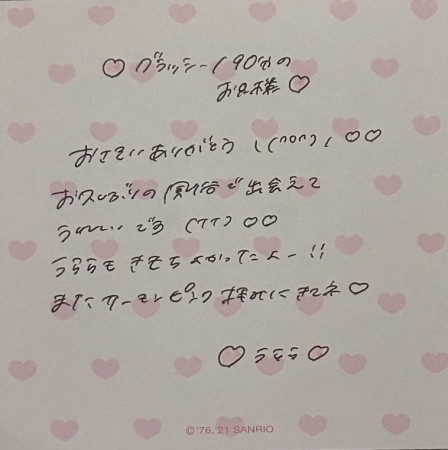 ♡ グラッシー / 90分の
お兄様 ♡
おさそいありがとう ♡♡
お久しぶりの で出会えて
うれしいです (TT) ♡♡
うららも きもちよかったよー!!
またサーモンピンク 拝みにきてネ ♡
♡ うらら ♡
©'76,'21 SANRIO